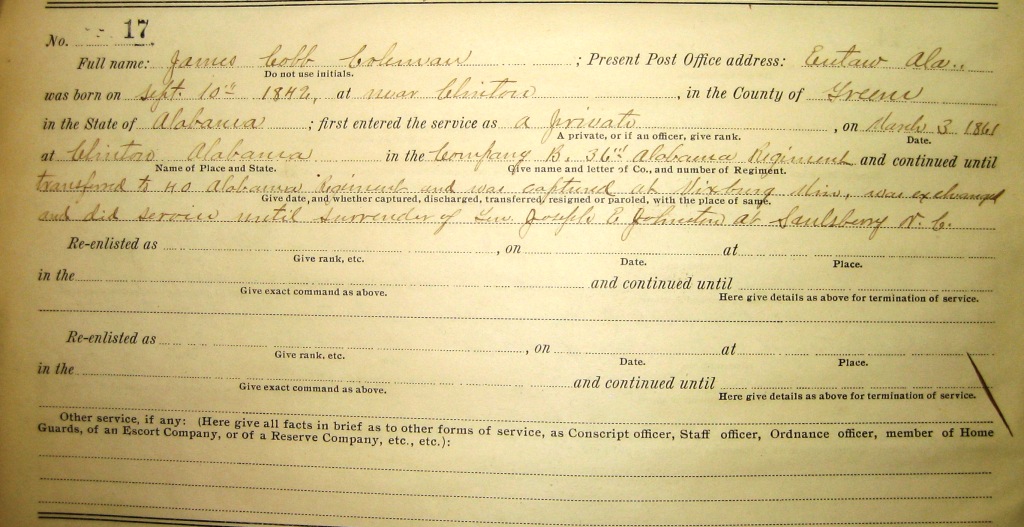 No. 17
Full name: James Cobb Coleman ; Present Post Office address: Eutaw Ala.
Do not use initials.
was born on Sept. 10th 1842, at near Clinton , in the County of Greene
in the State of Alabama ; first entered the service as a private , on March 3 1861
A private, or if an officer, give rank. Date.
at Clinton Alabama in the Company B. 36th Alabama Regiment and continued until
Name of Place and State. Give name and letter of Co., and number of Regiment.
transferred to 40 Alabama Regiment and was captured at Vixburg Miss, was exchanged
Give date, and whether captured, discharged, transferred, resigned or paroled, with the place of same.
and did service until surrender of Gen Joseph E Johnston at Saulsbury N. C.
Re-enlisted as , on at
Give rank, etc. Date. Place.
in the and continued until
Give exact command as above. Here give details as above for termination of service.
Re-enlisted as , on at
Give rank, etc. Date. Place.
in the and continued until
Give exact command as above. Here give details as above for termination of service.
Other service, if any: (Here give all facts in brief as to other forms of service, as Conscript officer, Staff officer, Ordnance officer, member of Home
Guards, of an Escort Company, or of a Reserve Company, etc., etc.):